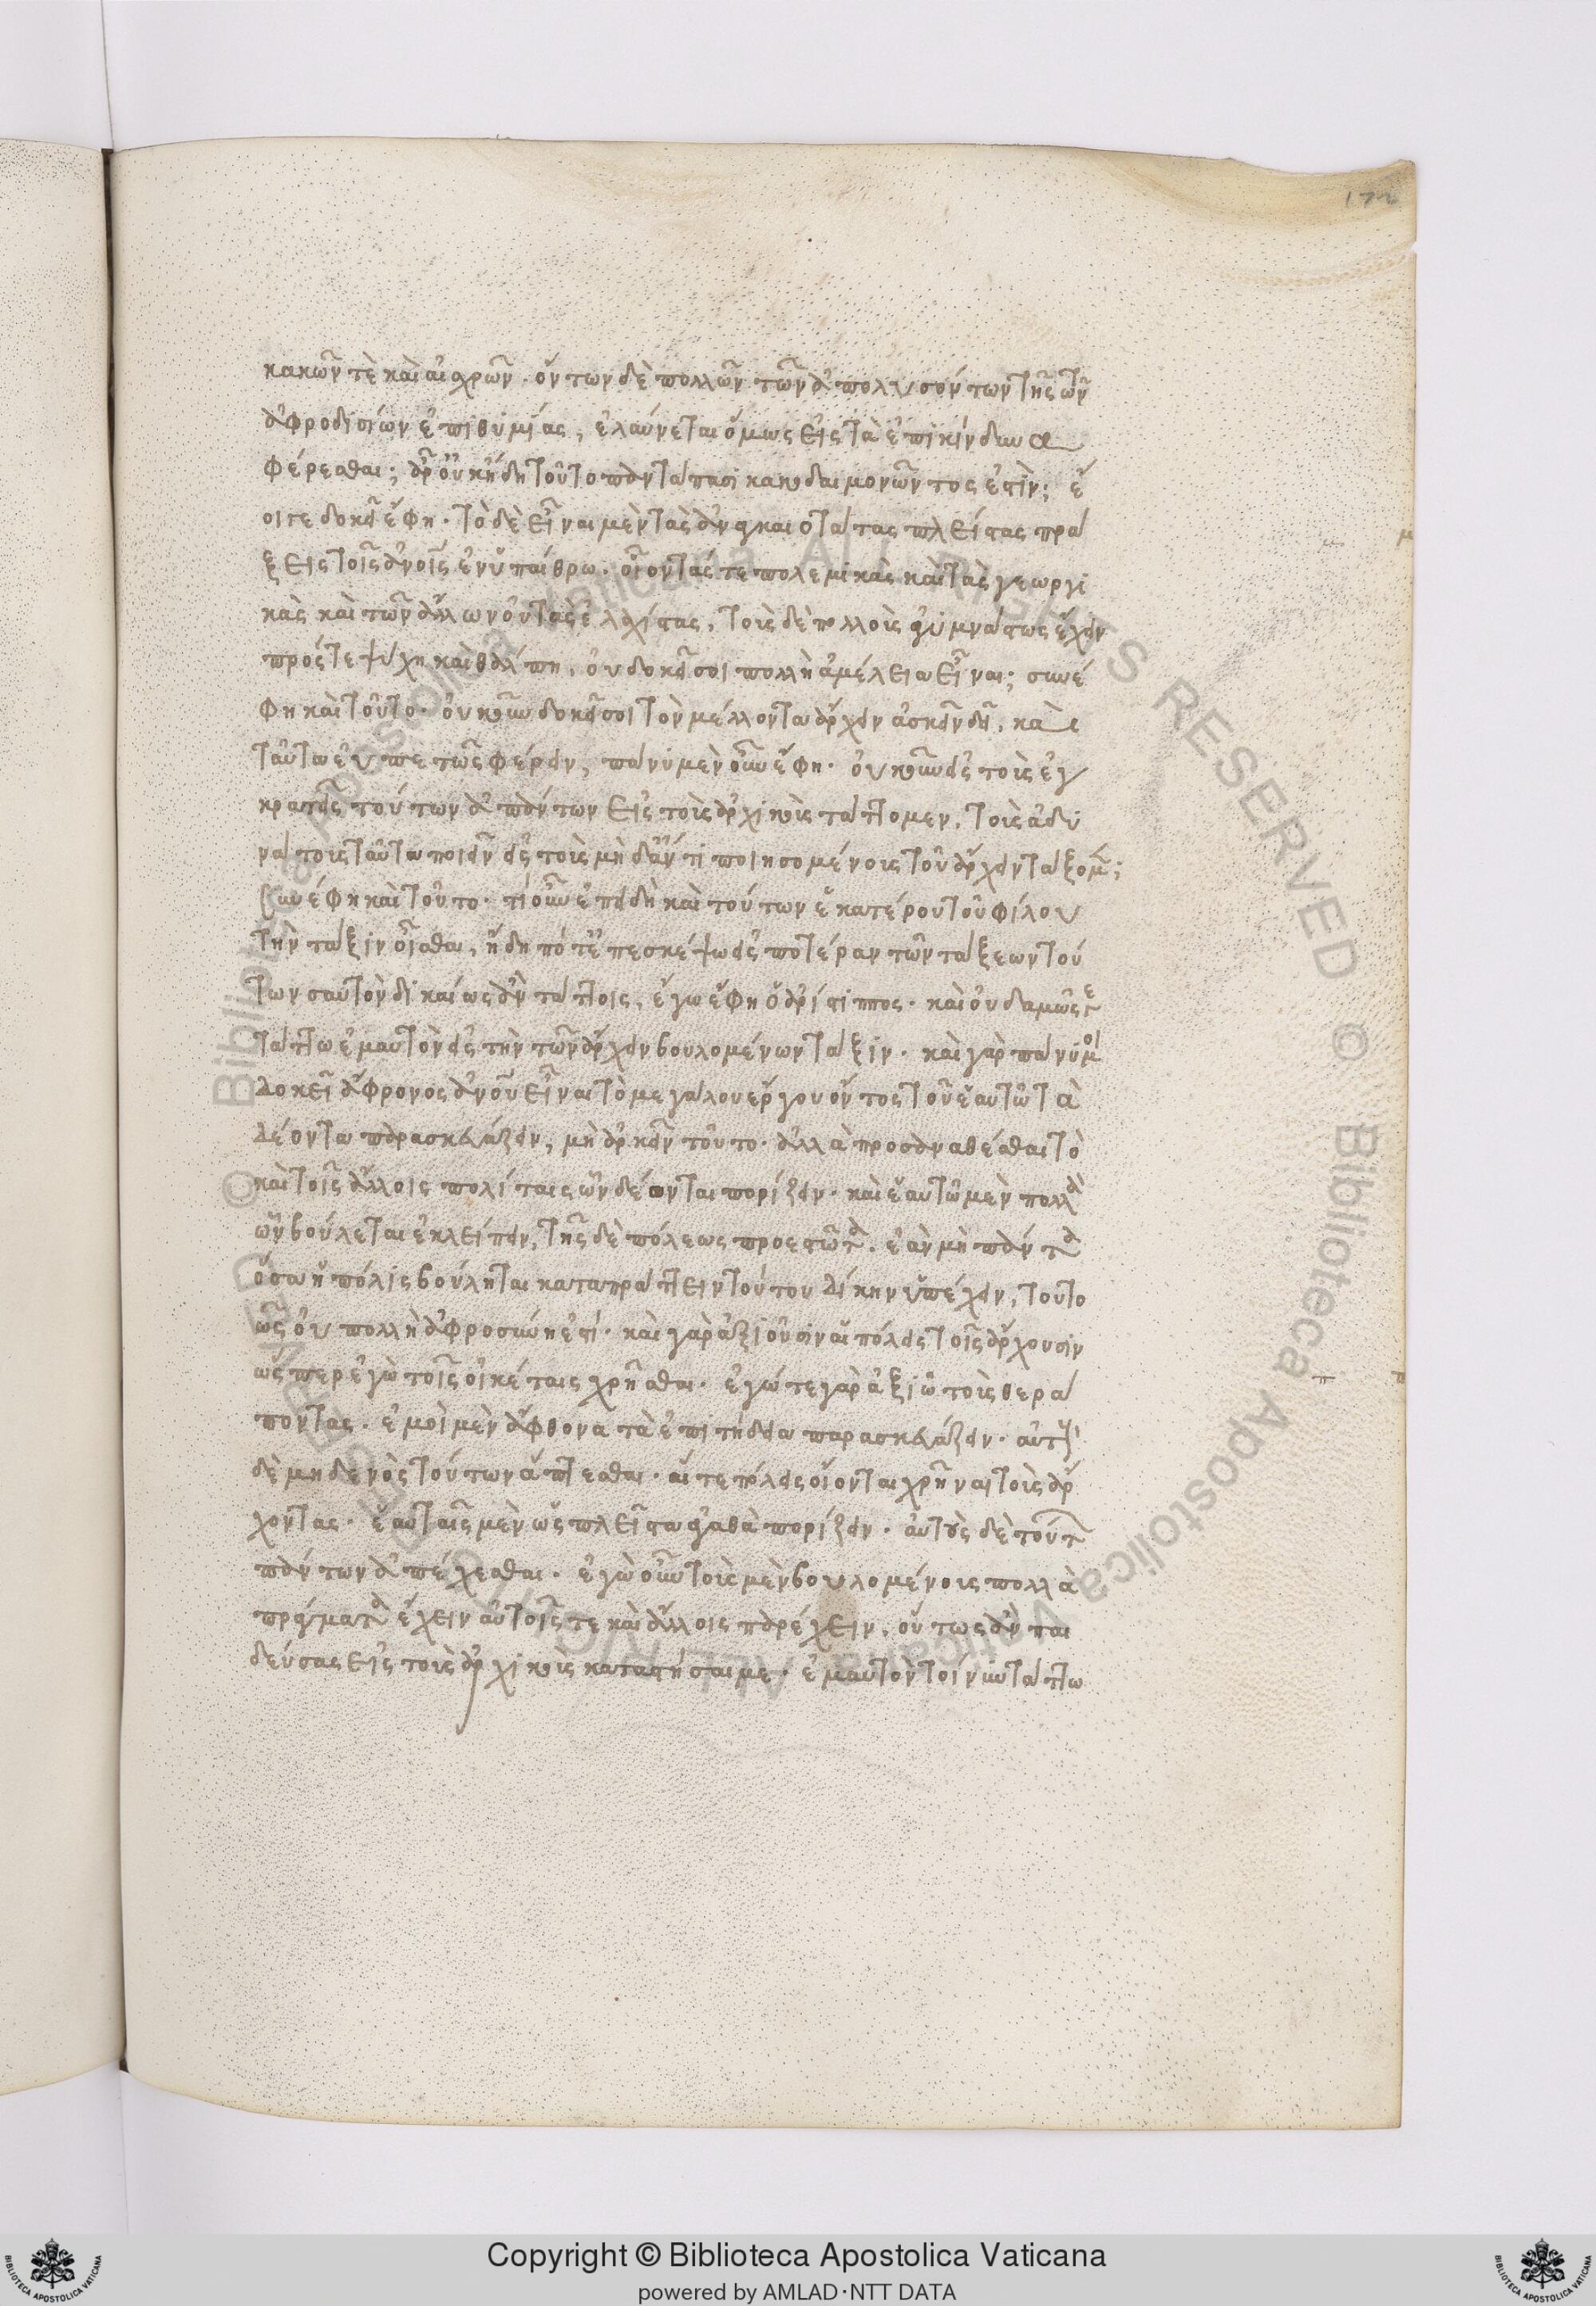 172
κακῶν τὲ καὶ αἰσχρῶν· ὄντων δὲ πολλῶν τῶν ἀπολυσόντων τῆς τῶν
ἀφροδισίων ἐπιθυμίας, ἐλαύνεται ὅμως εἰς τὰ ἐπικίνδυνα
φέρεσθαι; ἆρ' οὐκ ἤδη τοῦτο πάνταπασι κακοδαιμονῶντος ἐστὶν; ἔ
οιγε δοκεῖ ἔφη· τὸ δὲ εἶναι μὲν τὰς ἀναγκαιοτάτας πλείστας πρά
ξεις τοῖς ἀνοις ἐν ὑπαίθρω· οἷον τάς τε πολεμικὰς καὶ τὰς γεωργι
κὰς καὶ τῶν ἄλλων οὐ τὰς ἐλαχίστας, τοὺς δὲ πολλοὺς ἀγυμνάστως ἔχειν
πρός τε ψύχη καὶ θάλπη, οὐ δοκεῖ σοι πολλὴ ἀμέλεια εἶναι; συνέ
φη καὶ τοῦτο· οὐκοῦν δοκεῖ σοι τὸν μέλλοντα ἄρχειν ἀσκεῖν δεῖ, καὶ
ταῦτα εὐπετῶς φέρειν, πάνυ μὲν οὖν ἔφη· οὐκοῦν εἰ τοὺς ἐγ
κρατεῖς τούτων ἁπάντων εἰς τοὺς ἀρχικοὺς τάττομεν, τοὺς ἀδυ
νάτους ταῦτα ποιεῖν εἰς τοὺς μὴ δ' ἀντιποιησομένους τοῦ ἄρχειν τάξομ;
Συνέφη καὶ τοῦτο· τί οὖν ἐπειδὴ καὶ τούτων ἑκατέρου τοῦ φίλου
τὴν τάξιν οἶσθαι, ἤδη πότ' ἐπεσκέψω εἰς ποτέραν τῶν τάξεων τού
των σαυτὸν δικαίως ἂν τάττοις, ἔγω ἔφη ὁ ἀρίστιππος· καὶ οὐδαμῶς γε
τάττω ἐμαυτὸν εἰς τὴν τῶν ἄρχειν βουλομένων τάξιν· καὶ γὰρ πάνυ μοι
δοκεῖ ἄφρονος ἀνου εἶναι τὸ μεγάλου ἔργου ὄντος τοῦ ἑαυτῶ τὰ
δέοντα παρασκευάζειν, μὴ ἀρκεῖν τοῦτο· ἀλλὰ προσαναθέσθαι τὸ
καὶ τοῖς ἄλλοις πολίταις ὧν δέονται πορίζειν· καὶ ἑαυτῶ μὲν πολλὰ
ὧν βούλεται ἐκλείπειν, τῆς δὲ πόλεως προεστῶτα· ἐὰν μὴ πάντα
ὅσα ἡ πόλις βούληται καταπράττειν τούτου δίκην ὑπέχειν, τοῦτο
πῶς οὐ πολλὴ ἀφροσύνη ἐστί· καὶ γὰρ ἀξιοῦσιν αἱ πόλεις τοῖς ἄρχουσιν
ὥσπερ ἐγὼ τοῖς οἰκέταις χρῆσθαι· ἐγώ τε γὰρ ἀξιῶ τοὺς θερά
ποντας· ἐμοὶ μὲν ἄφθονα τὰ ἐπιτήδεια παρασκευάζειν· αὐτοὺς
δὲ μηδενὸς τούτων ἅπτεσθαι· αἵ τε πόλεις οἴονται χρῆναι τοὺς ἄρ
χοντας· ἑαυταῖς μὲν ὡς πλεῖστα ἀγαθὰ πορίζειν· αὐτοὺς δὲ τούτων
πάντων ἀπέχεσθαι· ἐγὼ οὖν τοὺς μὲν βουλομένους πολλὰ
πράγματα ἔχειν αὐτοῖς τε καὶ ἄλλοις παρέχειν, οὕτως ἂν παι
δεύσας εἰς τοὺς ἀρχικοὺς καταστήσαιμι· ἐμαυτὸν τοίνυν τάττω
Copyright © Biblioteca Apostolica Vaticana
powered by AMLAD·NTT DATA